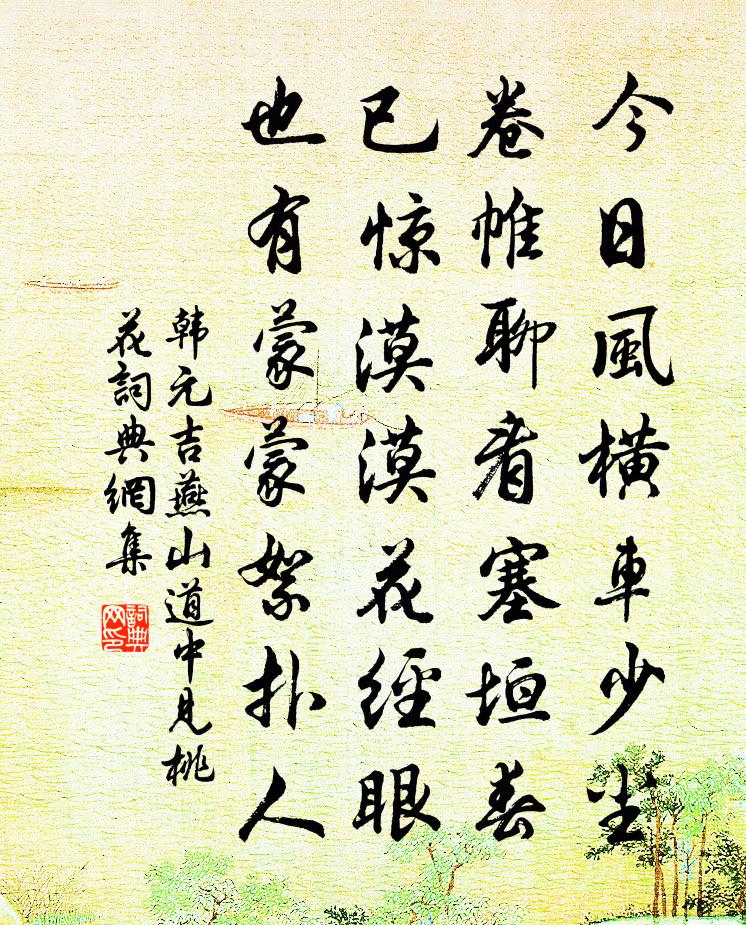 今日風横車少尘
卷帷聊看塞垣春
已惊漠漠花經眼
也有蒙蒙絮扑人
韩元吉燕山道中見桃
花詞典網集
詞典
网印